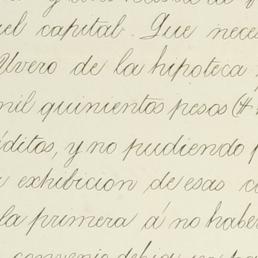 el capital. Que neces
Uvero de la hipoteca
mil quinientos pesos (#
éditos, y no pudiendo p
exhibicion de esas c
la primera á no haber
convenio debia